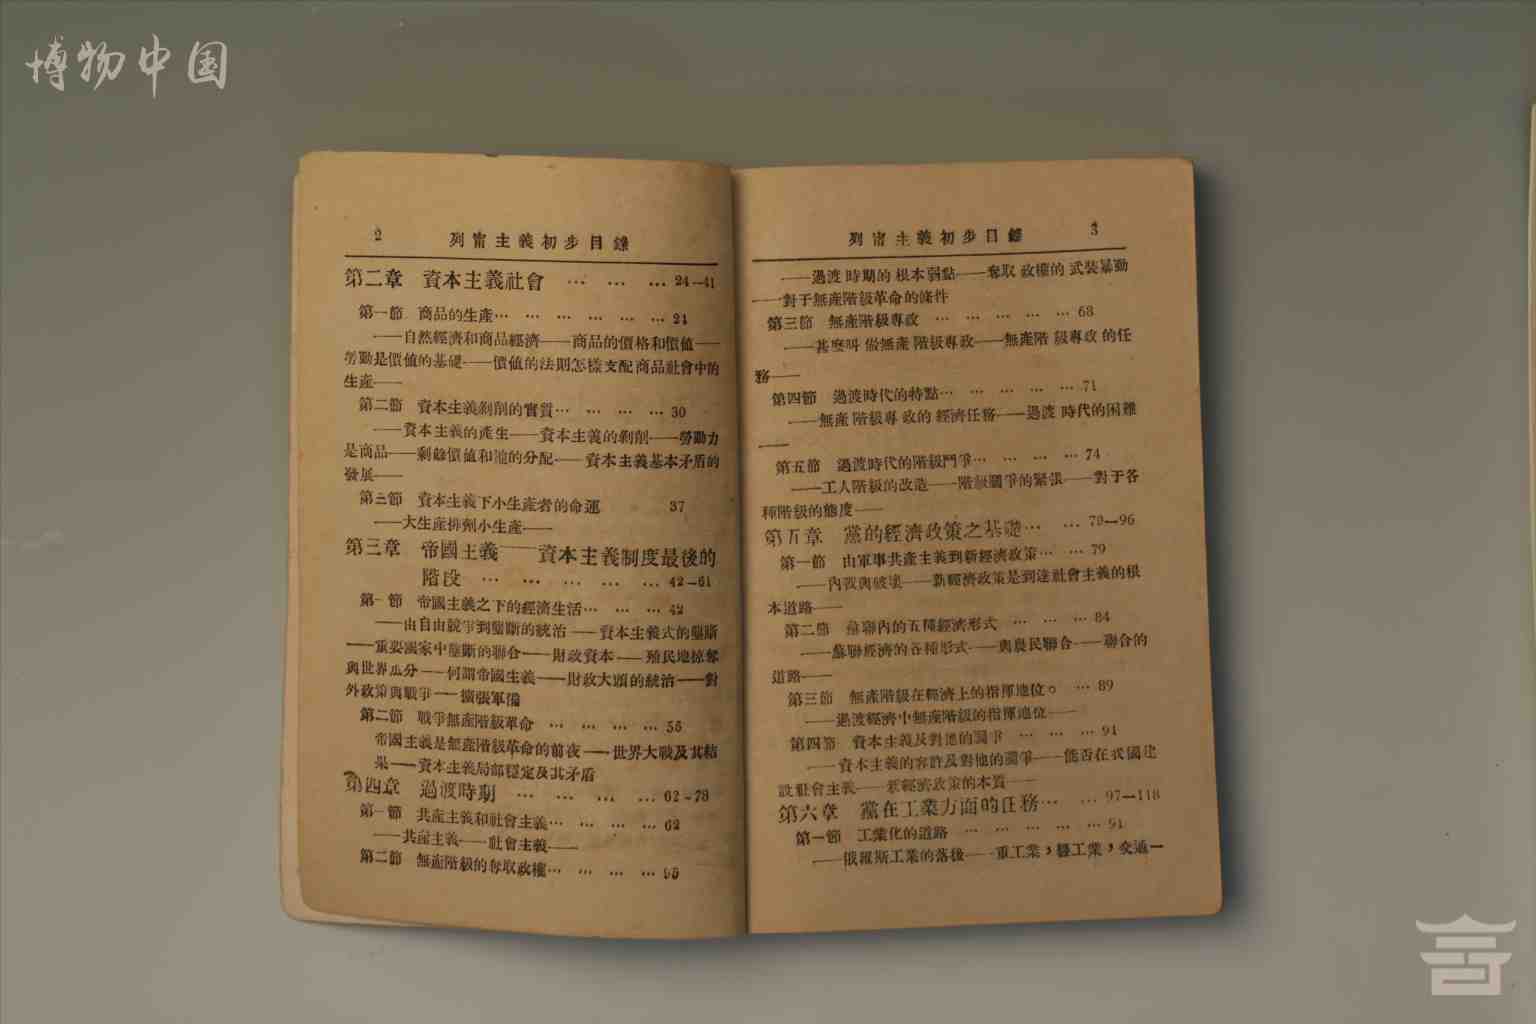 博物中国
2 列甯主義初步目錄
第二章 資本主義社會 … … … 24—41
第一節 商品的生產… … … … … … 24
——自然經濟和商品經濟——商品的價格和價值——
勞動是價值的基礎——價值的法則怎樣支配商品社會中的
生產——
第二節 資本主義剝削的實質… … … … 30
——資本主義的產生——資本主義的剝削——勞動力
是商品——剩餘價值和牠的分配——資本主義基本矛盾的
發展——
第三節 資本主義下小生產者的命運 37
——大生產排劑小生產——
第三章 帝國主義——資本主義制度最後的
階段 … … … … … 42—61
第一節 帝國主義之下的經濟生活… … … 42
——由自由競爭到壟斷的統治——資本主義式的壟斷
——重要國家中壟斷的聯合——財政資本——殖民地掠奪
與世界瓜分——何謂帝國主義——財政大頭的統治——對
外政策與戰爭——擴張軍備
第二節 戰爭無產階級革命 … … … … 55
帝國主義是無產階級革命的前夜——世界大戰及其結
果——資本主義局部穩定及其矛盾
第四章 過渡時期 … … … … 62—78
第一節 共產主義和社會主義… … … … 62
——共產主義——社會主義——
第二節 無產階級的奪取政權… … … …
列甯主義初步目錄 3
——過渡時期的根本弱點——奪取政權的武裝暴動
——對于無產階級革命的條件
第三節 無產階級專政 … … … … … 68
——甚麼叫做無產階級專政——無產階級專政的任
務——
第四節 過渡時代的特點… … … … … 71
——無產階級專政的經濟任務——過渡時代的困難
——
第五節 過渡時代的階級鬥爭… … … … 74
——工人階級的改造——階級鬭爭的緊張——對于各
種階級的態度——
第五章 黨的經濟政策之基礎… … 79—96
第一節 由軍事共產主義到新經濟政策… … 79
——內戰與破壞——新經濟政策是到達社會主義的根
本道路——
第二節 蘇聯內的五種經濟形式 … … … 84
——蘇聯經濟的各種形式——與農民聯合——聯合的
道路——
第三節 無產階級在經濟上的指揮地位。 … 89
——過渡經濟中無產階級的指揮地位——
第四節 資本主義及對他的鬭爭 … … … 91
——資本主義的容許及對他的鬭爭——能否在我國建
設社會主義——新經濟政策的本質——
第六章 黨在工業方面的任務… … 97—118
第一節 工業化的道路 … … … … … 91
——俄羅斯工業的落後——重工業，輕工業，交通—